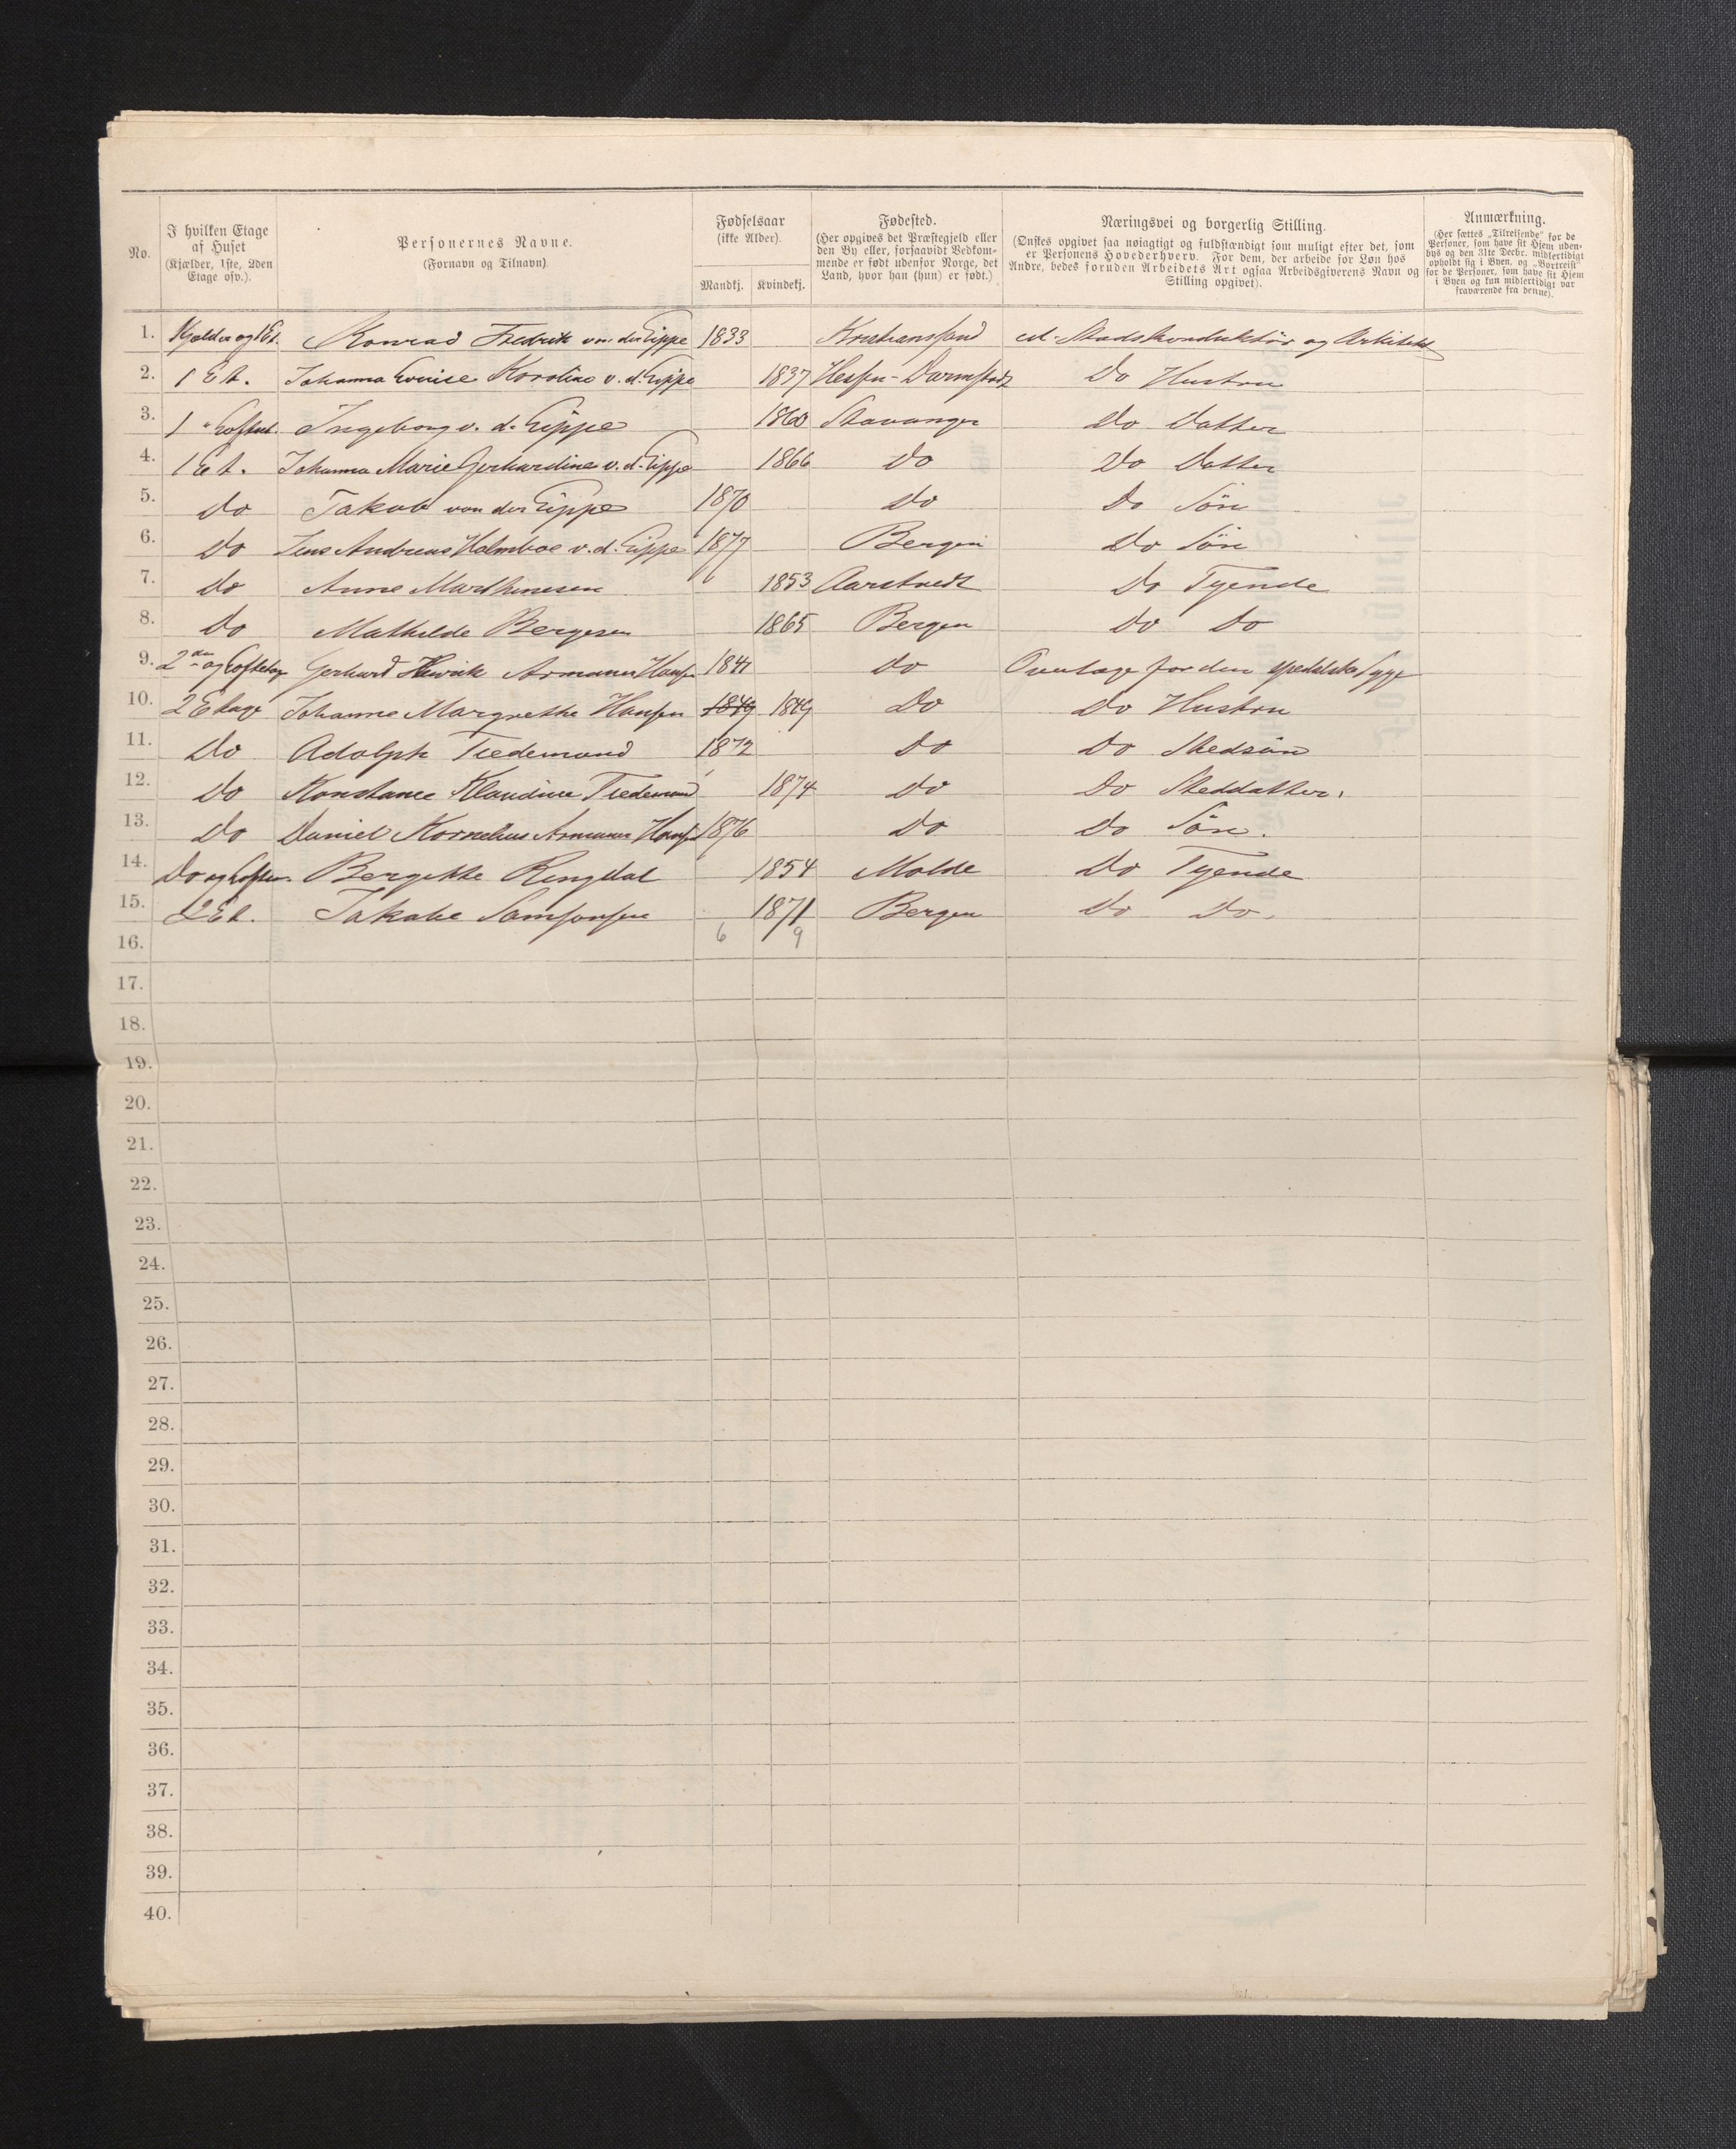 No.
I hvilken Etage af Huset (Kjælder, 1ste, 2den Etage osv.).
Personernes Navne. (Fornavn og Tilnavn)
Fødselsaar (ikke Alder).
Mandkj. Kvindekj.
Fødested. (Her opgives det Præstegjeld eller den By eller, forsaavidt Vedkommende er født udenfor Norge, det Land, hvor han (hun) er født.)
Næringsvei og borgerlig Stilling. (Ønskes opgivet saa nøiagtigt og fuldstændigt som muligt efter det, som er Personens Hovederhverv. For dem, der arbeide for Løn hos Andre, bedes foruden Arbeidets Art ogsaa Arbeidsgiverens Navn og Stilling opgivet).
Anmærkning. (Her sættes „Tilreisende" for de Personer, som have sit Hjem udenbys og den 31te Decbr. midlertidigt opholdt sig i Byen, og „Bortreist" for de Personer, som have sit Hjem i Byen og kun midlertidigt var fraværende fra denne).
1. Kjælder og 1 Et. Konrad Fredrik von der Lippe 1833 Kristianssand Stadskonduktör og Arkitekt
2. 1 Et. Johanna Lovise Karoline v. d. Lippe 1837 Hessen-Darmstadt Do Hustru
3. 1 " Loftset. Ingeborg v. d. Lippe 1860 Stavanger Do Datter
4. 1 Et. Johanna Marie Gerhardine v. d. Lippe 1866 Do Do Datter
5. Do Jakob von der Lippe 1870 Do Do Sön
6. Do Jens Andreas Holmboe v. d. Lippe 1877 Bergen Do Sön
7. Do Anne Marthinesen 1853 Aarstvedt Do Tyende
8. Do Mathilde Bergesen 1865 Bergen Do Do
9. 2den og Loftetage Gerhard Henrik Armauer Hansen 1841 Do Overlæge for den spedalske Syge
10. 2 Etage Johanne Margrethe Hansen 1849 1849 Do Do Hustru
11. Do Adolph Tiedemand 1872 Do Do Stedsön
12. Do Konstance Klaudine Tiedemand 1874 Do Do Steddatter.
13. Do Daniel Kornelius Armauer Hansen 1876 Do Do Sön.
14. Do og Loften. Bergitte Ringdal 1854 Molde Do Tyende
15. 2 Et. Jakobe Samsonsen 1871 Bergen Do Do.
16. 6 9
17.
18.
19.
20.
21.
22.
23.
24.
25.
26.
27.
28.
29.
30.
31.
32.
33.
34.
35.
36.
37.
38.
39.
40.